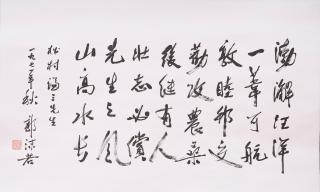 渤澥汪洋
一苇可航
敦睦邦交
劝攻农桑
后继有人
壮志必偿
先生之风
山高水长
松村谦三先生
一九七一年秋
郭沫若